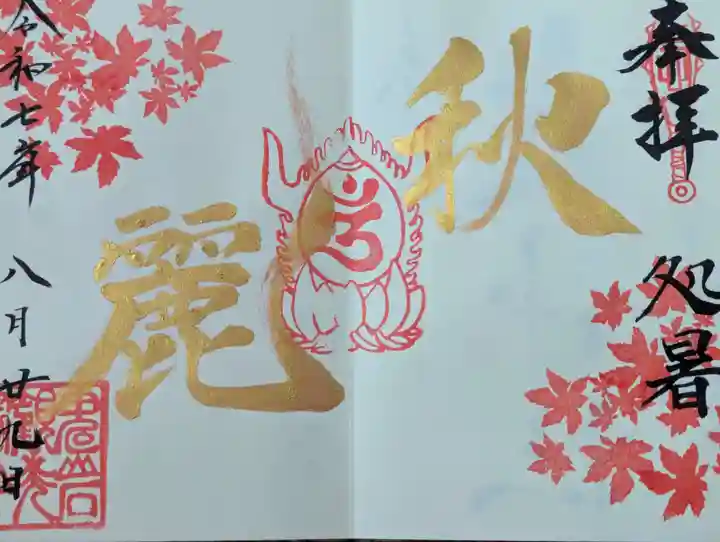 奉拝
処暑
秋麗
令和七年
八月廿九日